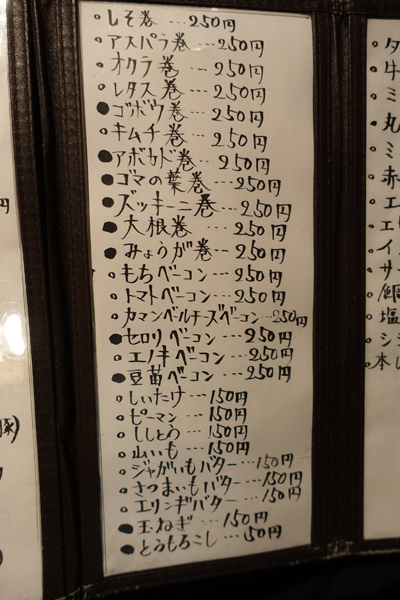 しそ巻 … 250円
アスパラ巻 … 250円
オクラ巻 … 250円
レタス巻 … 250円
ゴボウ巻 … 250円
キムチ巻 … 250円
アボカド巻 … 250円
ゴマの葉巻 … 250円
ズッキーニ巻 … 250円
大根巻 … 250円
みょうが巻 … 250円
もちベーコン … 250円
トマトベーコン … 250円
カマンベールチーズベーコン … 250円
セロリベーコン … 250円
エノキベーコン … 250円
豆苗ベーコン … 250円
しいたけ … 150円
ピーマン … 150円
ししとう … 150円
山いも … 150円
ジャガいもバター … 150円
さつまいもバター … 150円
エリンギバター … 150円
玉ねぎ … 150円
とうもろこし … 150円
円
タ
牛
ミ
丸
ミ
赤
エ
エ
イ
サ
鯛
塩
シ
本